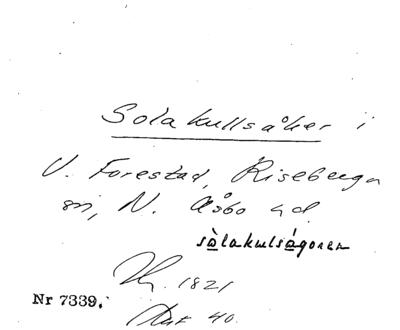 Solakullsåker i
V. Forestad, Riseberga
sn, N. Åsbo hd.
sòlakulságoren
1821
Nr 7339.
40.